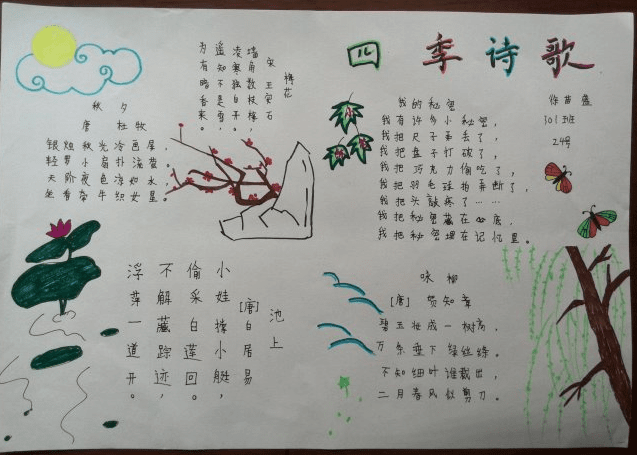 四季诗歌
徐苗盛
301班
24号
我的秘密
我有许多小秘密，
我把尺子弄丢了，
我把盒子打破了，
我把巧克力偷吃了，
我把羽毛球拍弄断了，
我把头敲疼了……
我把秘密藏在心底，
我把秘密埋在记忆里。
梅花
宋 王安石
墙角数枝梅，
凌寒独自开。
遥知不是雪，
为有暗香来。
秋夕
唐 杜牧
银烛秋光冷画屏，
轻罗小扇扑流萤。
天阶夜色凉如水，
坐看牵牛织女星。
池上
[唐]白居易
小娃撑小艇，
偷采白莲回。
不解藏踪迹，
浮萍一道开。
咏柳
[唐] 贺知章
碧玉妆成一树高，
万条垂下绿丝绦。
不知细叶谁裁出，
二月春风似剪刀。